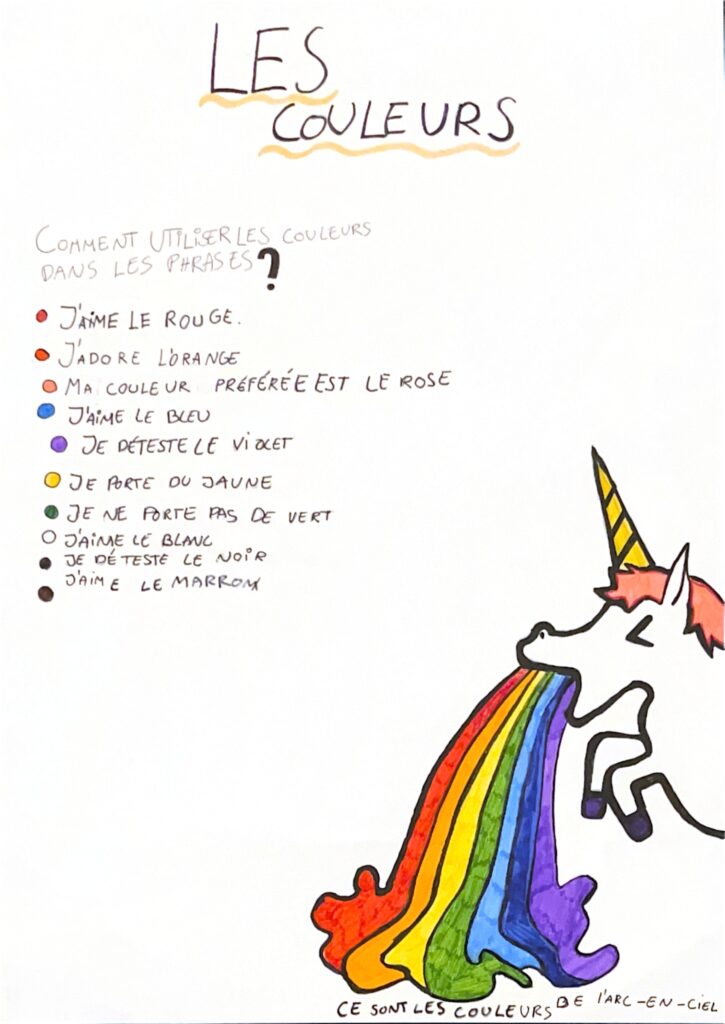 LES
COULEURS
COMMENT UTILISER LES COULEURS
DANS LES PHRASES?
J'AIME LE ROUGE.
J'ADORE L'ORANGE
MA COULEUR PRÉFÉRÉE EST LE ROSE
J'AIME LE BLEU
JE DÉTESTE LE VIOLET
JE PORTE DU JAUNE
JE NE PORTE PAS DE VERT
J'AIME LE BLANC
JE DÉTESTE LE NOIR
J'AIME LE MARRON
CE SONT LES COULEURS DE L'ARC-EN-CIEL